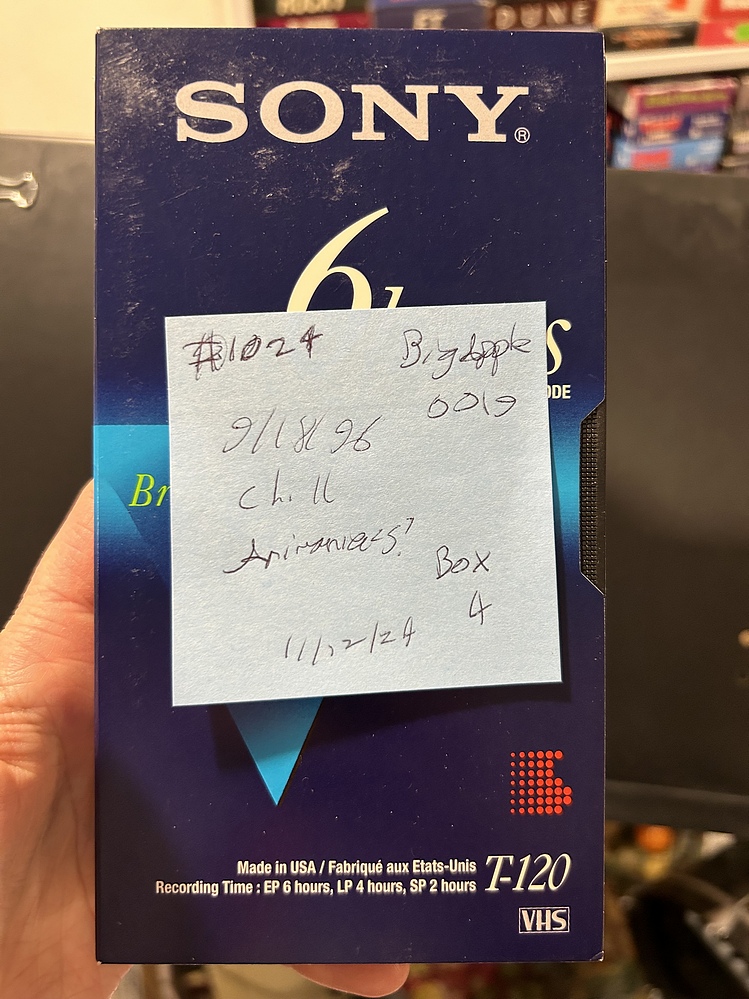 DUNE
SONY®
6 h s
ODE
#1024 Big Apple
0019
9/18/96
Chill
Br
Animaniacs?
Box
4
11/12/24
Made in USA / Fabriqué aux Etats-Unis
Recording Time : EP 6 hours, LP 4 hours, SP 2 hours
T-120
VHS